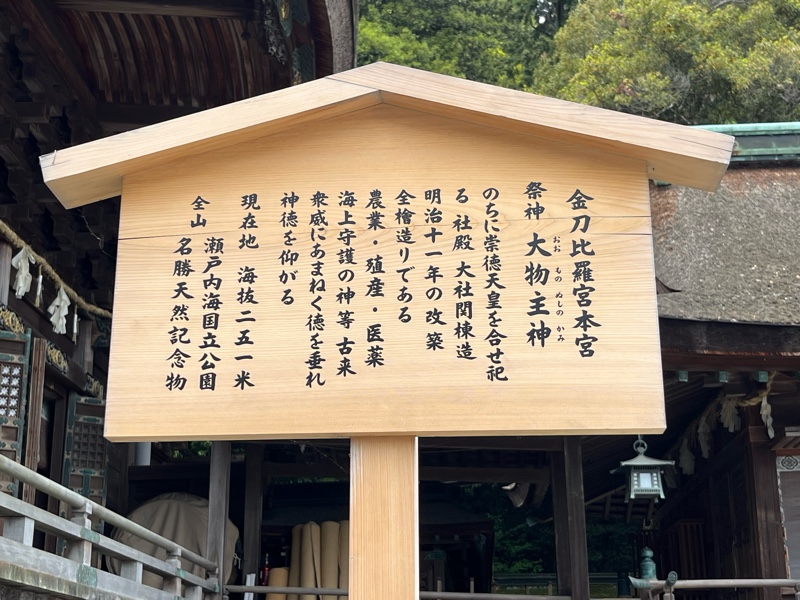 金刀比羅宮本宮
祭神 大物主神
おお もの ぬしの かみ
のちに崇徳天皇を合せ祀
る 社殿 大社関棟造
明治十一年の改築
全檜造りである
農業・殖産・医薬
海上守護の神等 古来
衆威にあまねく徳を垂れ
神徳を仰がる
現在地 海抜二五一米
瀬戸内海国立公園
全山 名勝天然記念物